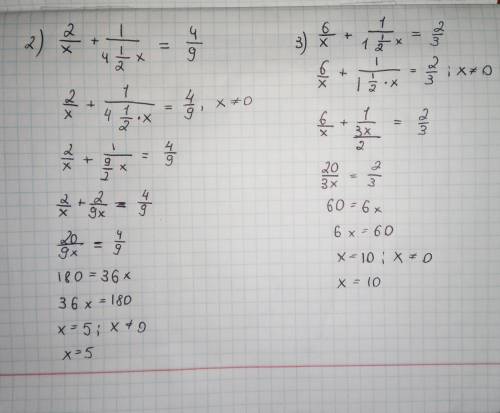 2) 2/x + 1/(4 1/2 x) = 4/9
2/x + 1/(4 1/2 · x) = 4/9, x ≠ 0
2/x + 1/(9/2 x) = 4/9
2/x + 2/9x = 4/9
20/9x = 4/9
180 = 36x
36x = 180
x = 5; x ≠ 0
x = 5
3) 6/x + 1/(1 1/2 x) = 2/3
6/x + 1/(1 1/2 · x) = 2/3; x ≠ 0
6/x + 1/(3x/2) = 2/3
20/3x = 2/3
60 = 6x
6x = 60
x = 10; x ≠ 0
x = 10